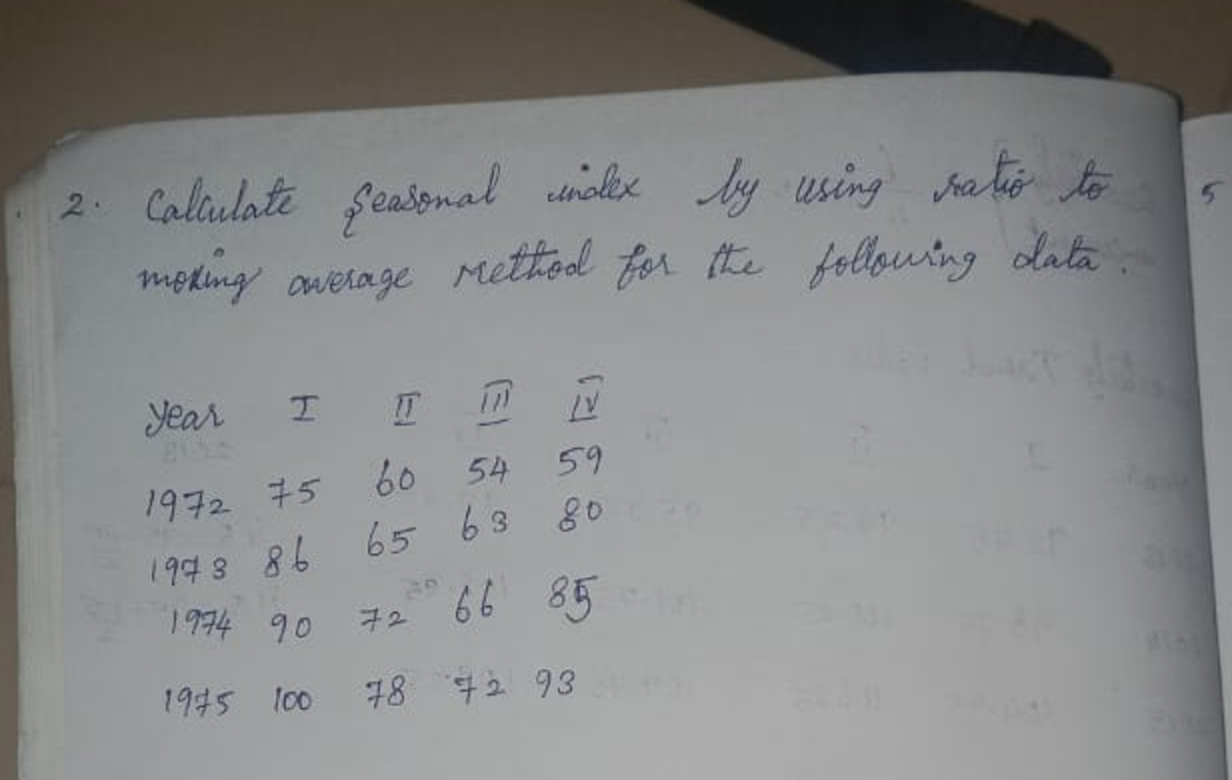 2. Calculate Seasonal index by using ratio to
moving average Method for the following data.
5
Year I II III IV
1972 75 60 54 59
1973 86 65 63 80
1974 90 72 66 85
1975 100 78 72 93